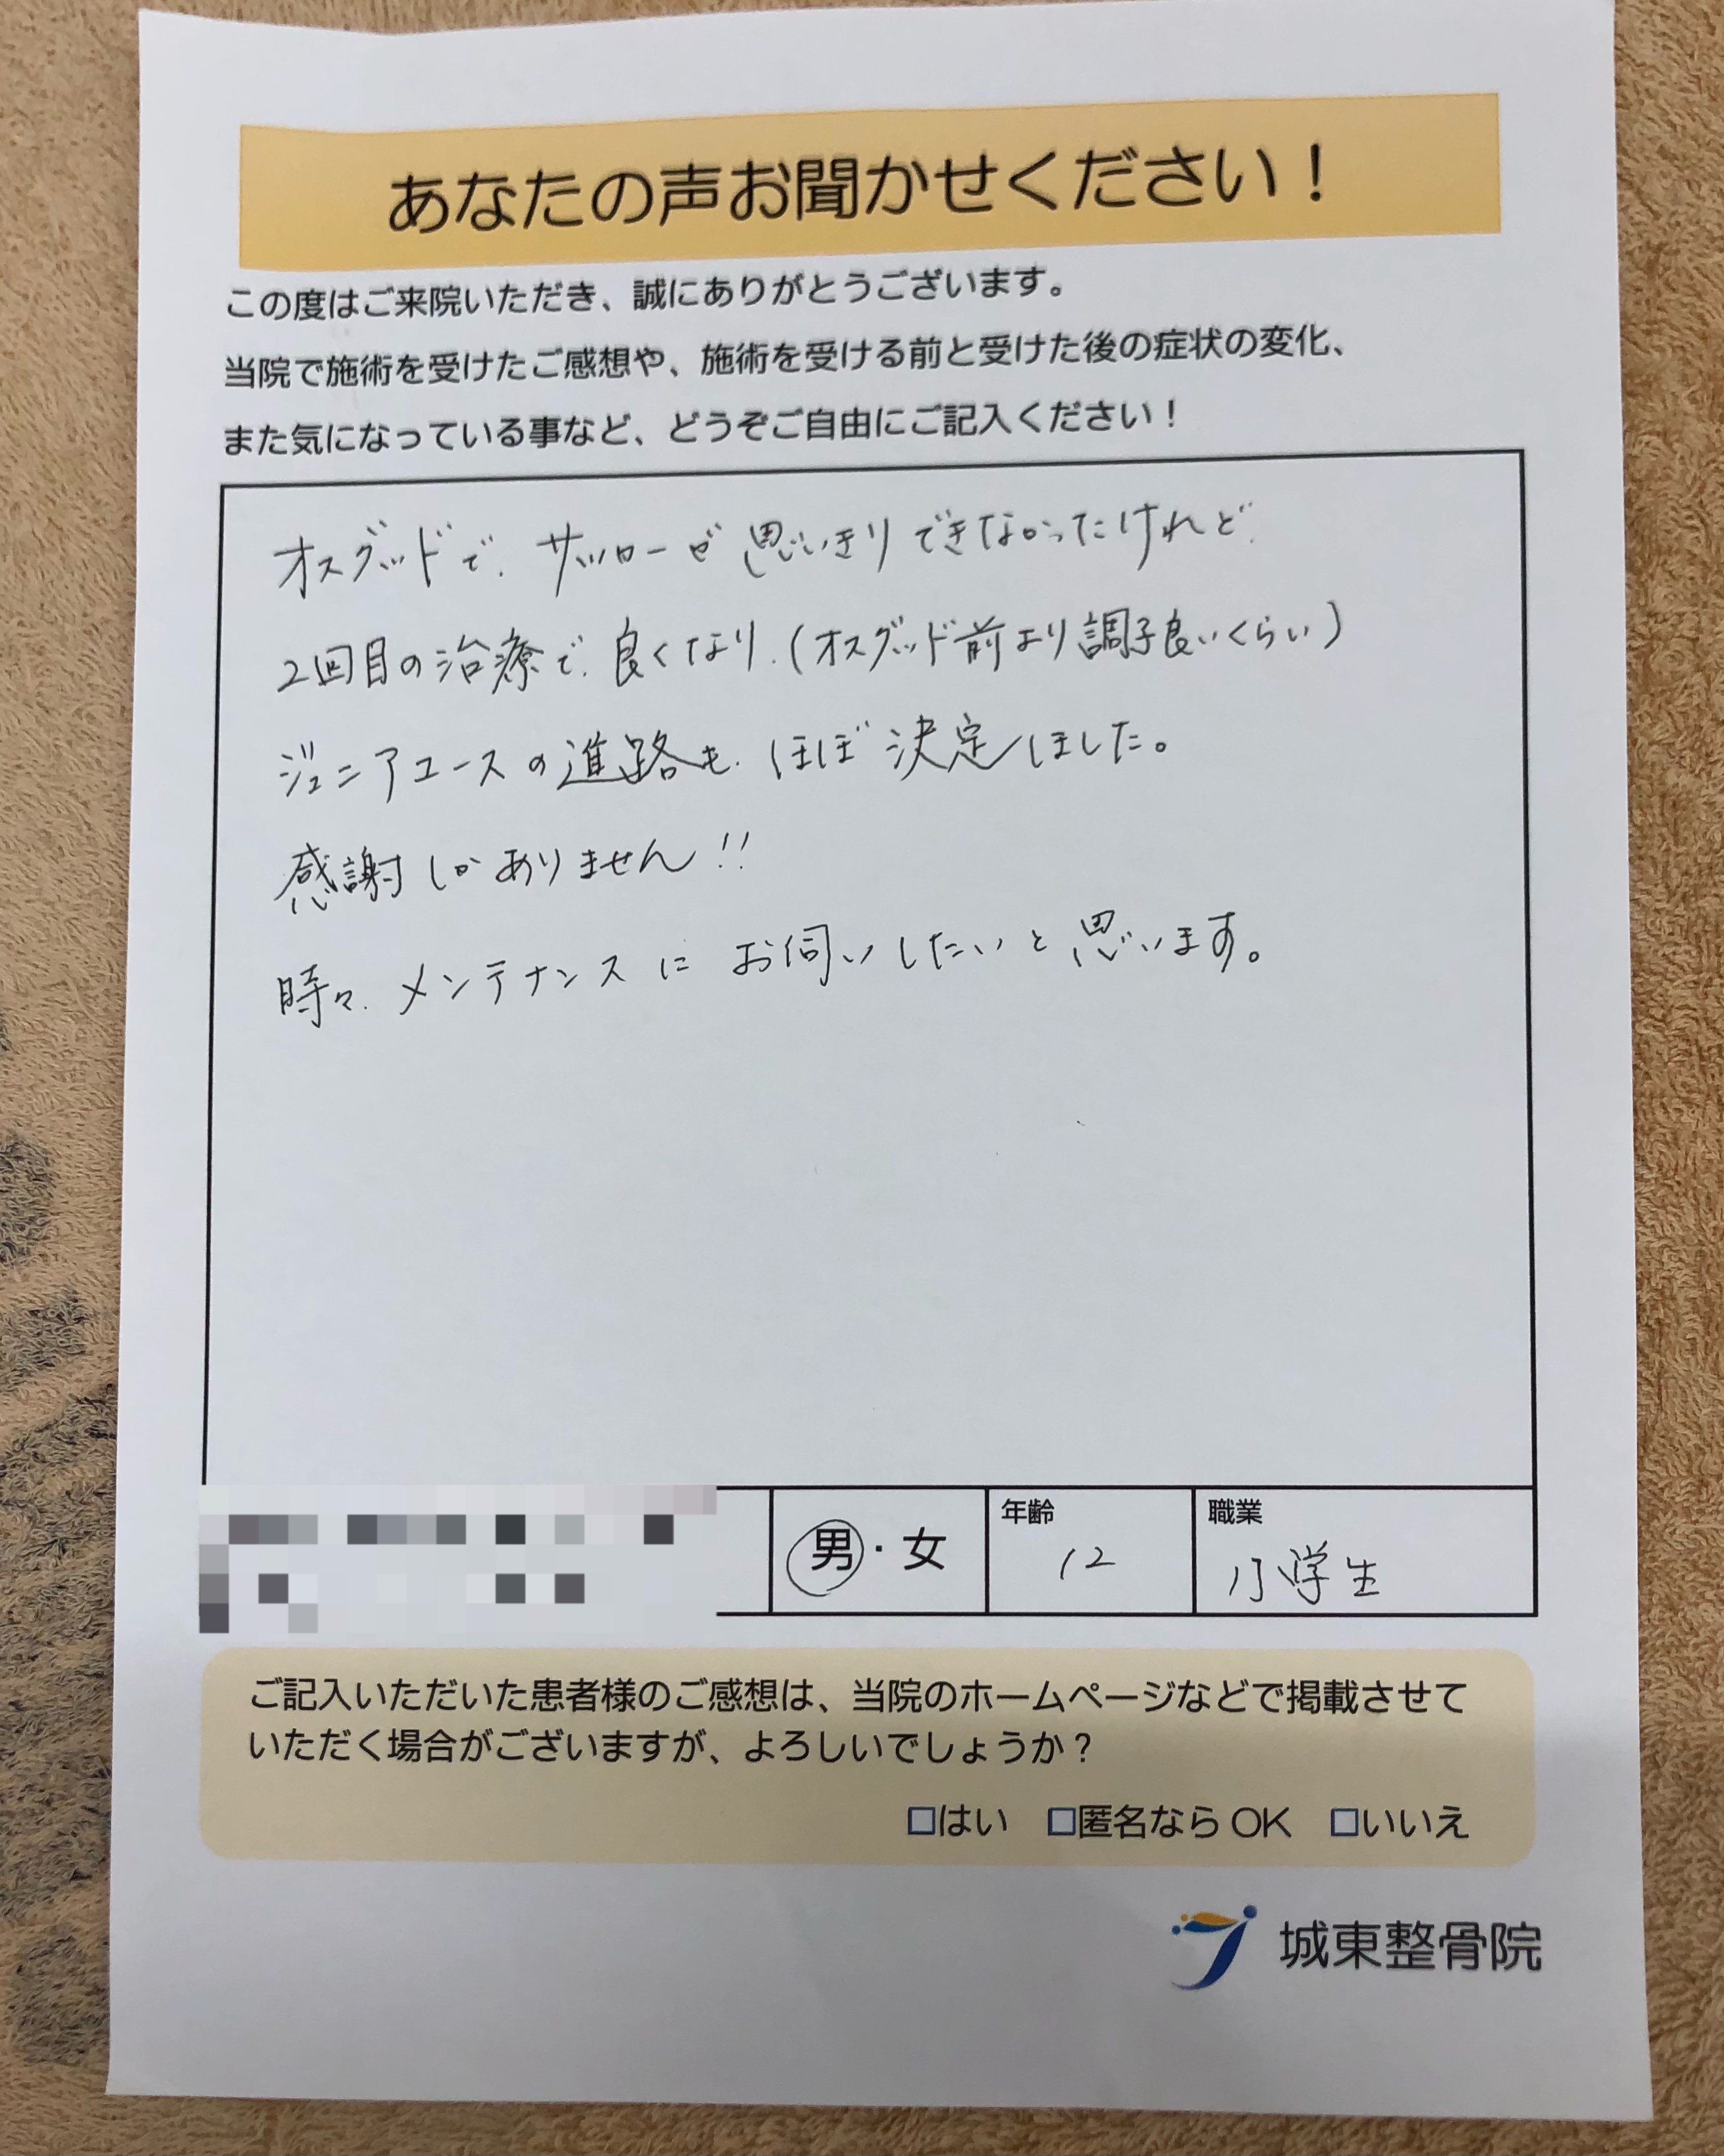 あなたの声お聞かせください！
この度はご来院いただき、誠にありがとうございます。
当院で施術を受けたご感想や、施術を受ける前と受けた後の症状の変化、
また気になっている事など、どうぞご自由にご記入ください！
オスグッドで、サッカーが思いきりできなかったけれど、
2回目の治療で、良くなり、(オスグッド前より調子良いくらい)
ジュニアユースの進路も、ほぼ決定しました。
感謝しかありません!!
時々、メンテナンスにお伺いしたいと思います。
男・女
年齢
12
職業
小学生
ご記入いただいた患者様のご感想は、当院のホームページなどで掲載させて
いただく場合がございますが、よろしいでしょうか？
□はい □匿名なら OK □いいえ
城東整骨院